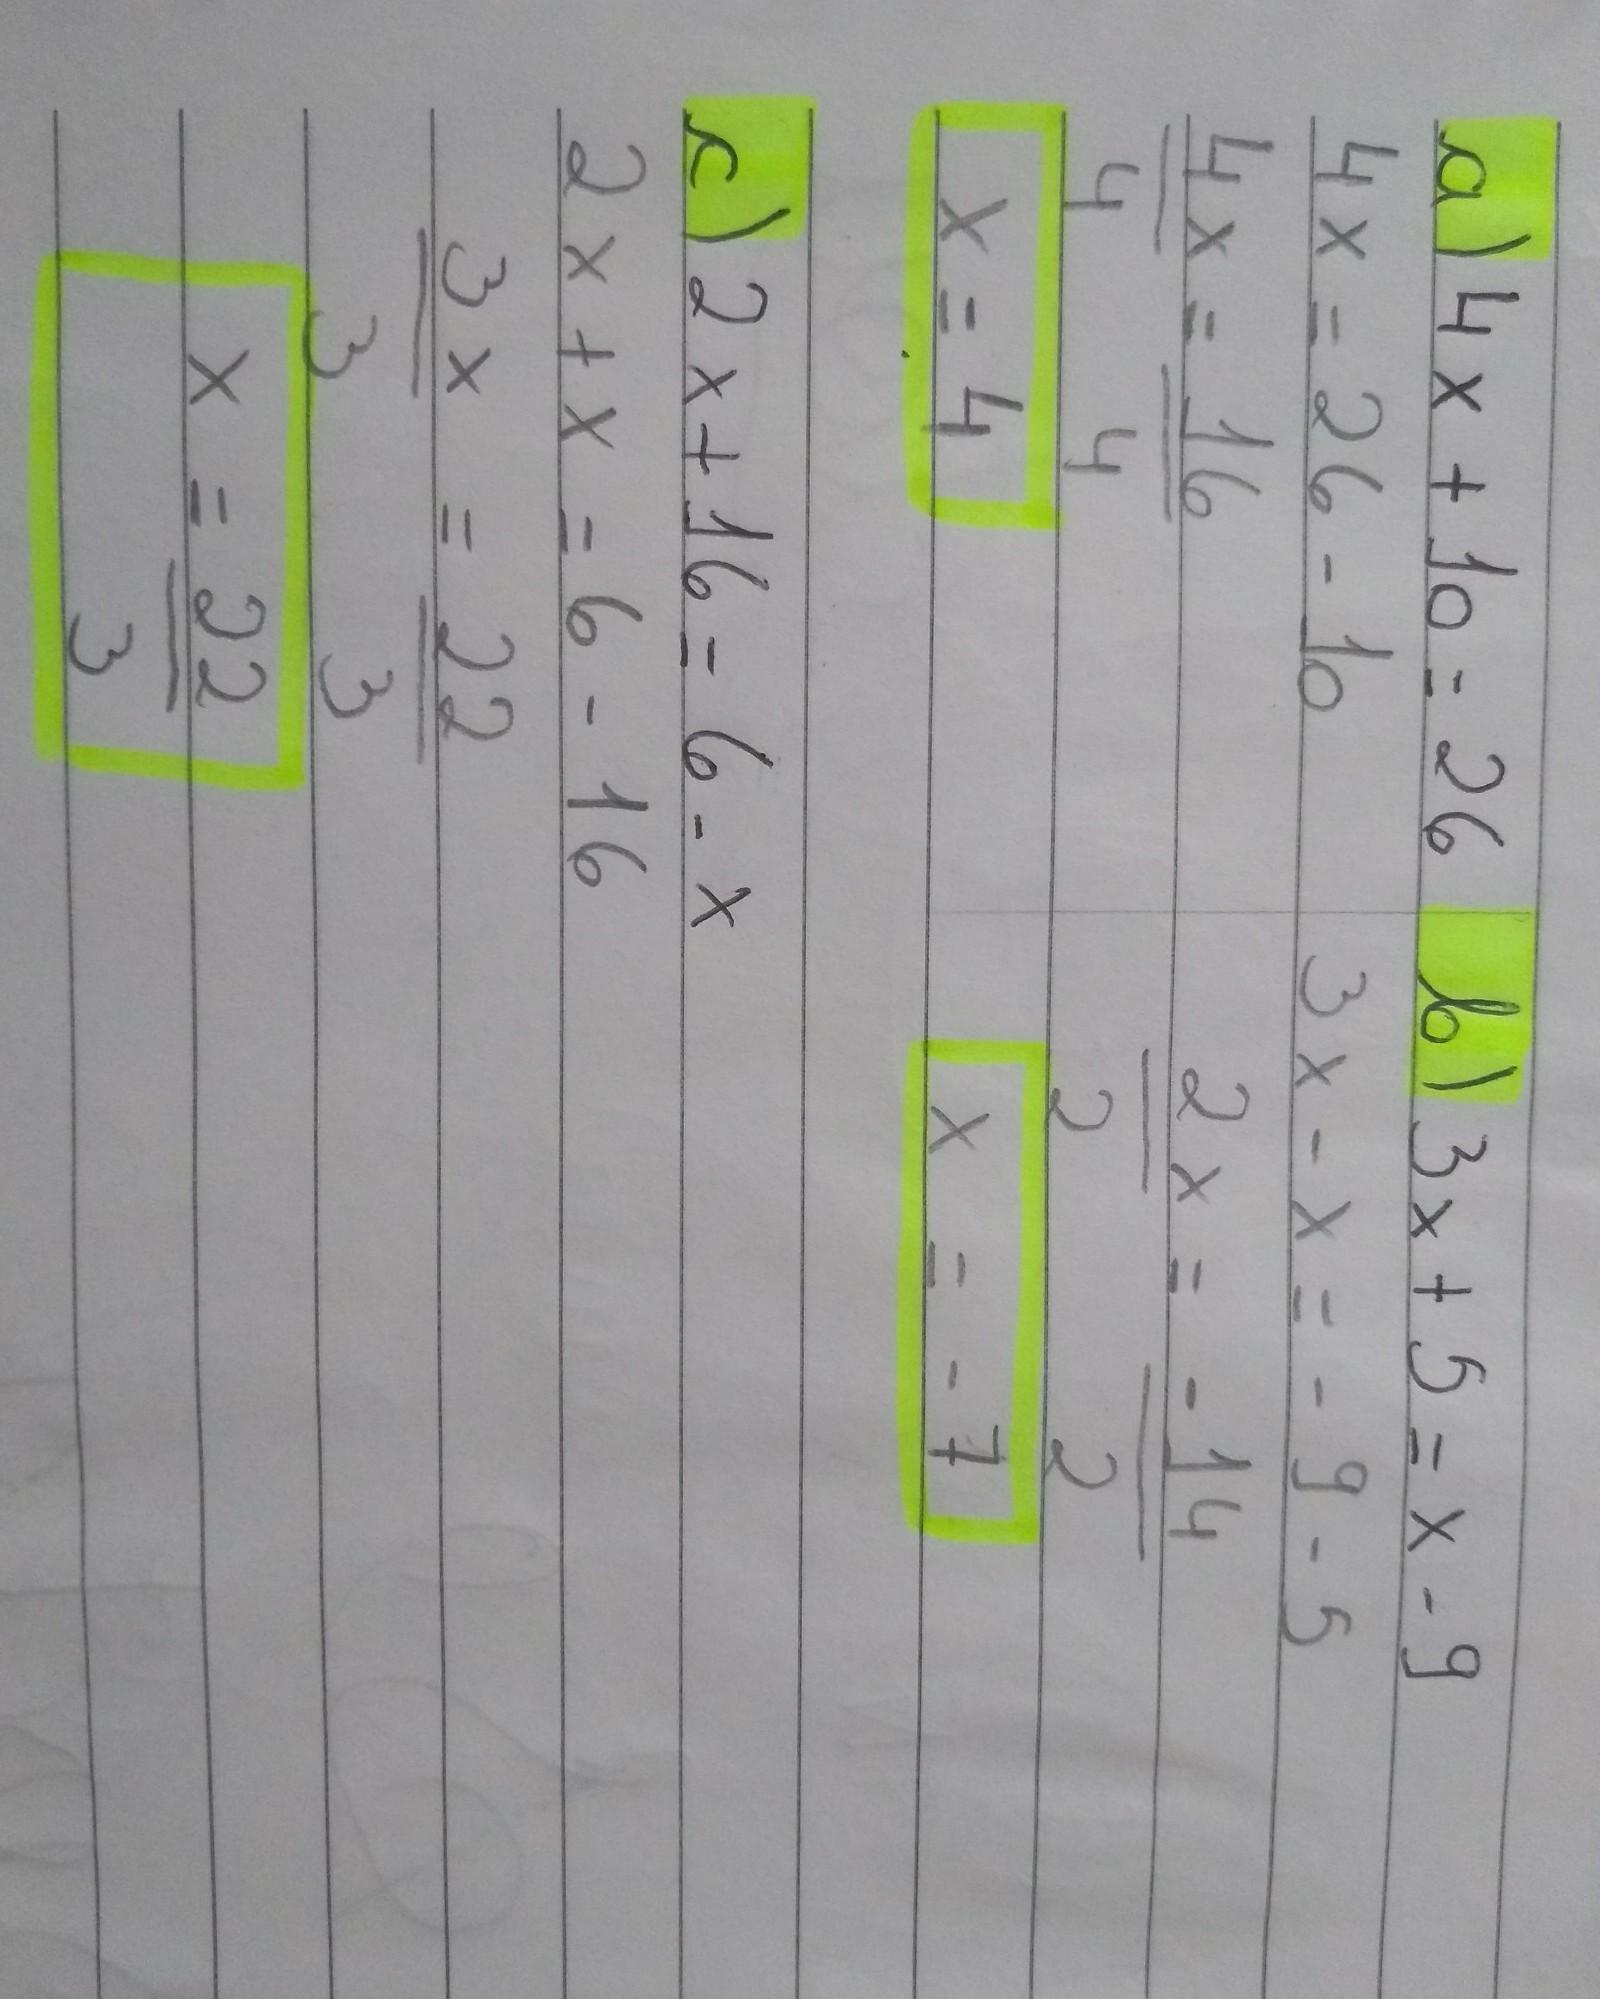 a) 4x + 10 = 26
4x = 26 - 10
4x = 16
4 4
x = 4
b) 3x + 5 = x - 9
3x - x = - 9 - 5
2x = - 14
2 2
x = - 7
c) 2x + 16 = 6 - x
2x + x = 6 - 16
3x = 22
3 3
x = 22
3